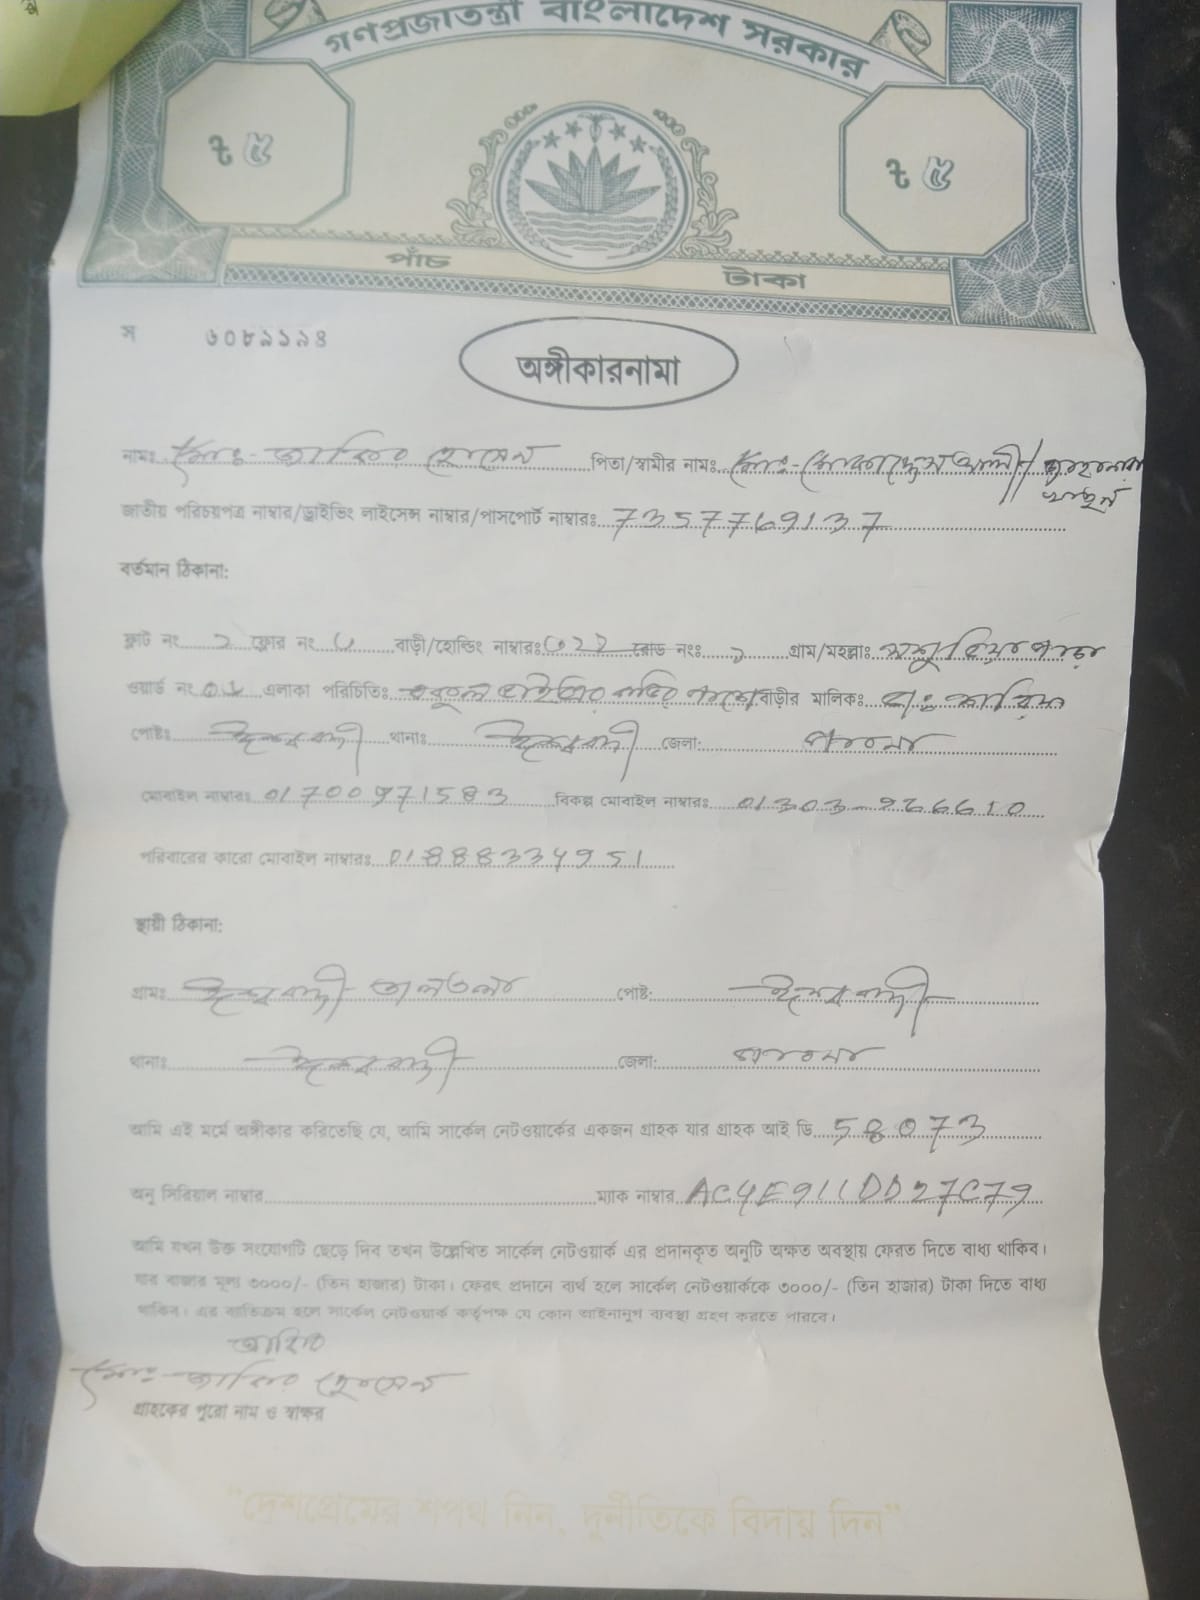 গণপ্রজাতন্ত্রী বাংলাদেশ সরকার
৳ ৫ ৳ ৫
পাঁচ টাকা
স ৬০৮৯১৯৪
অঙ্গীকারনামা
নামঃ মোঃ- জাকির হোসেন পিতা/স্বামীর নামঃ মোঃ-
জাতীয় পরিচয়পত্র নাম্বার/ড্রাইভিং লাইসেন্স নাম্বার/পাসপোর্ট নাম্বারঃ 7357769137
বর্তমান ঠিকানা:
ফ্লাট নং ফ্লোর নং বাড়ী/হোল্ডিং নাম্বারঃ রোড নংঃ গ্রাম/মহল্লাঃ
ওয়ার্ড নং এলাকা পরিচিতিঃ বাড়ীর মালিকঃ
পোষ্টঃ ঈশ্বরদী থানাঃ ঈশ্বরদী জেলা: পাবনা
মোবাইল নাম্বারঃ 01700971583 বিকল্প মোবাইল নাম্বারঃ 01303-926610
পরিবারের কারো মোবাইল নাম্বারঃ 01888334951
স্থায়ী ঠিকানা:
গ্রামঃ ঈশ্বরদী তালতলা পোষ্ট: ঈশ্বরদী
থানাঃ ঈশ্বরদী জেলা: পাবনা
আমি এই মর্মে অঙ্গীকার করিতেছি যে, আমি সার্কেল নেটওয়ার্কের একজন গ্রাহক যার গ্রাহক আই ডি 58073
অনু সিরিয়াল নাম্বার ম্যাক নাম্বার AC4E911DD27C79
আমি যখন উক্ত সংযোগটি ছেড়ে দিব তখন উল্লেখিত সার্কেল নেটওয়ার্ক এর প্রদানকৃত অনুটি অক্ষত অবস্থায় ফেরত দিতে বাধ্য থাকিব।
যার বাজার মূল্য ৩০০০/- (তিন হাজার) টাকা। ফেরৎ প্রদানে ব্যর্থ হলে সার্কেল নেটওয়ার্ককে ৩০০০/- (তিন হাজার) টাকা দিতে বাধ্য
থাকিব। এর ব্যতিক্রম হলে সার্কেল নেটওয়ার্ক কর্তৃপক্ষ যে কোন আইনানুগ ব্যবস্থা গ্রহণ করতে পারবে।
মোঃ- জাকির হোসেন
গ্রাহকের পুরো নাম ও স্বাক্ষর
"দেশপ্রেমের শপথ নিন, দুর্নীতিকে বিদায় দিন"